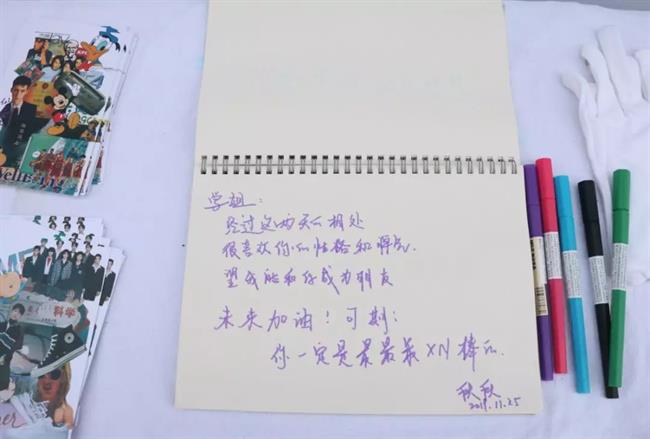 学姐：
经过这两天的相处
很喜欢你的性格和脾气.
望我能和你成为朋友
未来加油！可期：
你一定是最最最×N棒的.
秋秋
2019.11.25
KFC
科学